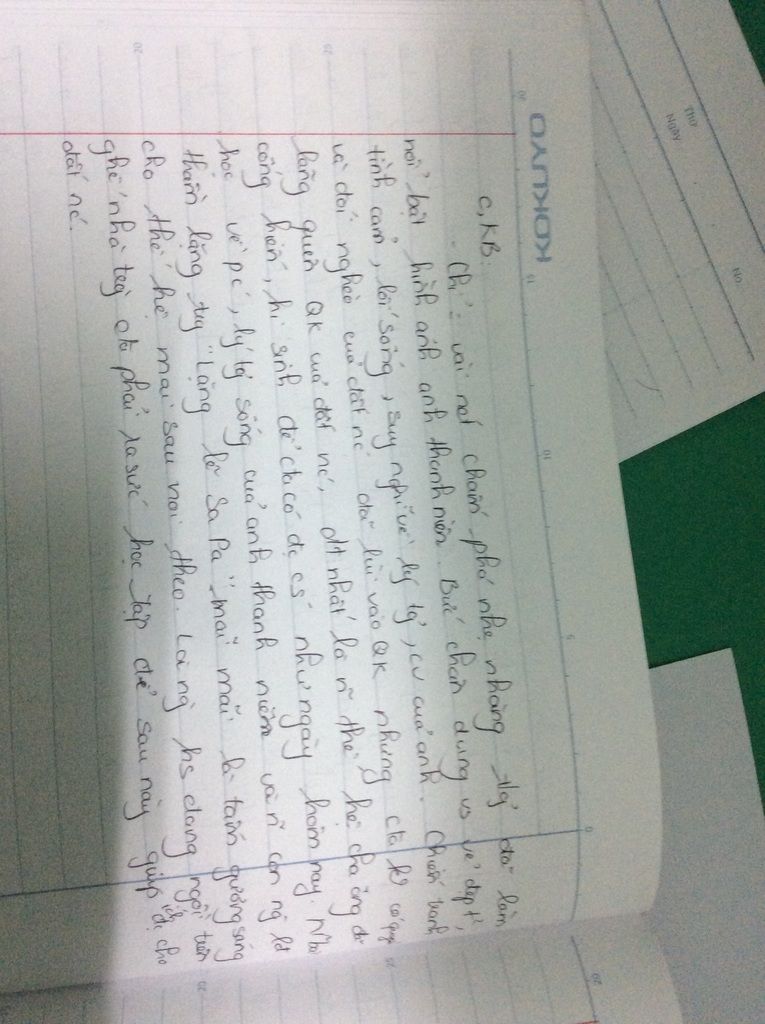 KOKUYO
THỨ
NGÀY
NO.
c, KB:
- Chỉ = vài nét chấm phá nhẹ nhàng, tg đã làm
nổi bật hình ảnh anh thanh niên. Bức chân dung vs vẻ đẹp t²,
tình cảm, lối sống, suy nghĩ về lý tg, cv của anh. Chiến tranh
và đói nghèo của đất nc đã lùi vào QK nhưng cta k có quyền
lãng quên QK của đất nc, đb nhất là n~ thế hệ cha ông đã
cống hiến, hi sinh để cta có đc cs như ngày hôm nay.
học về pc, lý tg sống của anh thanh niên và n~ con ng lđ
thầm lặng trg "Lặng lẽ Sa Pa" mãi mãi là tấm gương sáng
cho thế hệ mai sau noi theo. Là ng hs đang ngồi trên
ghế nhà trg cta phải ra sức học tập để sau này giúp ích đc cho
đất nc.